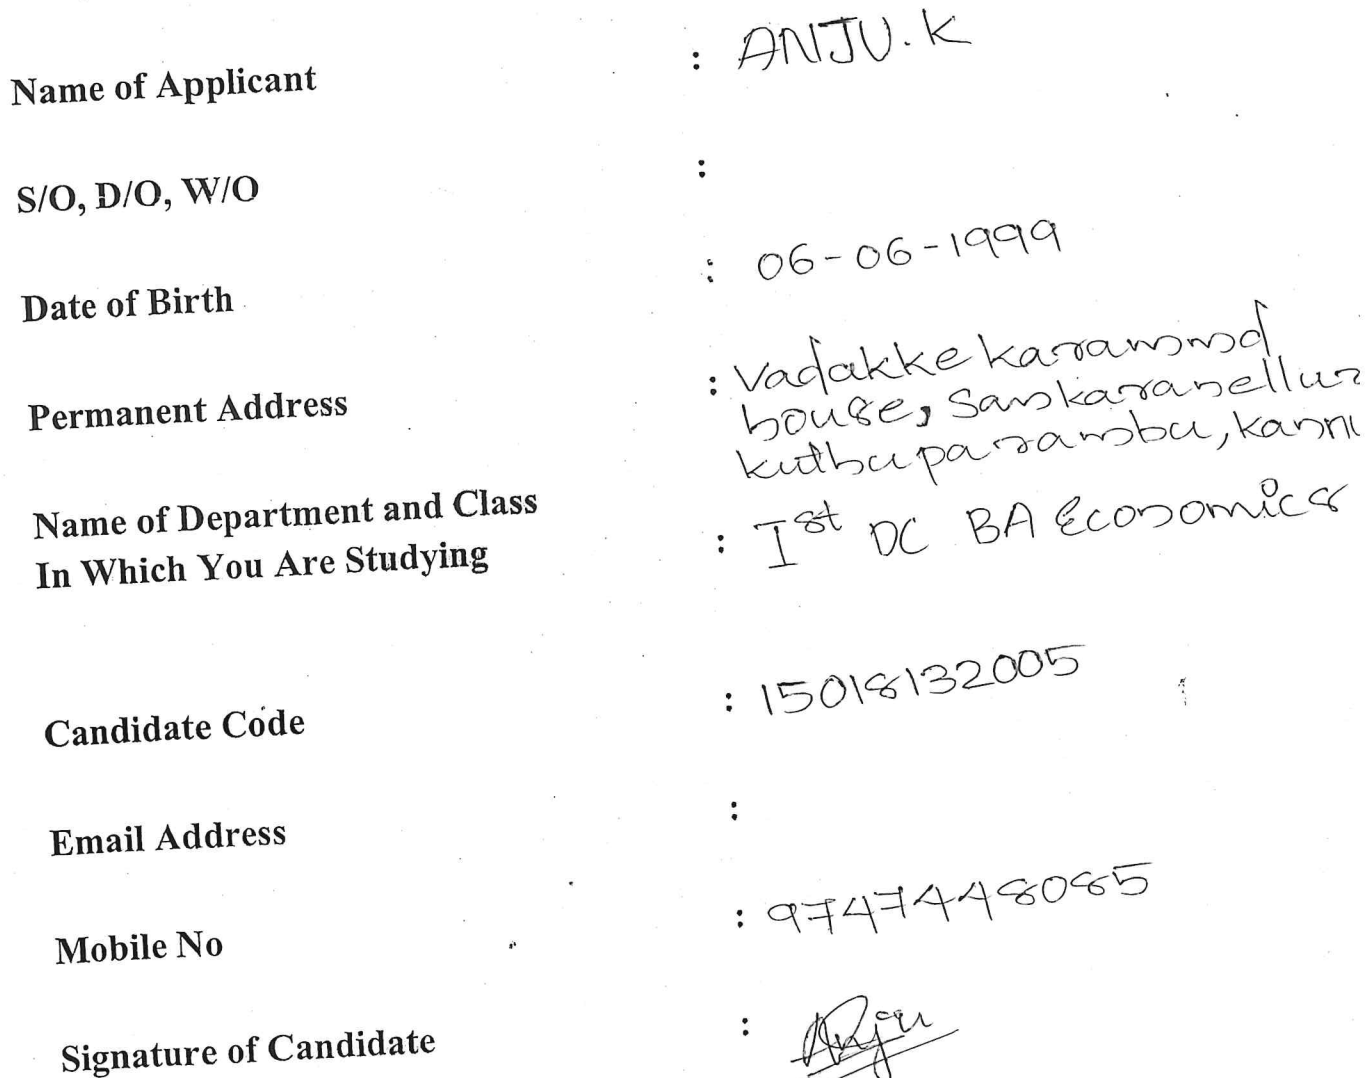 Name of Applicant : ANJU. K
S/O, D/O, W/O :
Date of Birth : 06-06-1999
Permanent Address : Vadakke
house, Sankaranellur
kuthuparambu,
Name of Department and Class
In Which You Are Studying : Ist DC BA Economics
Candidate Code : 15018132005
Email Address :
Mobile No : 9747448085
Signature of Candidate : Anju